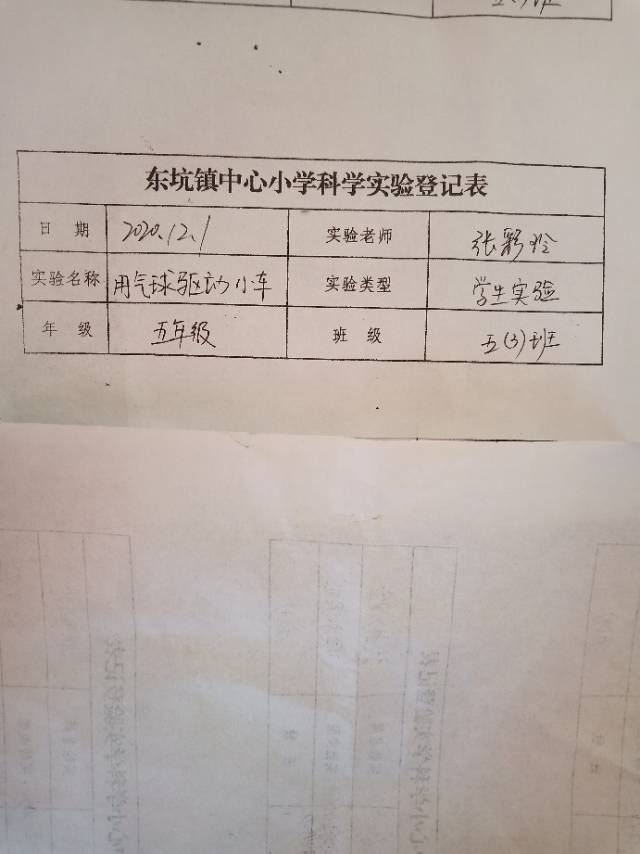 五(3)班
东坑镇中心小学科学实验登记表
日 期 2020.12.1 实验老师 张彩玲
实验名称 用气球驱动小车 实验类型 学生实验
年 级 五年级 班 级 五(3)班